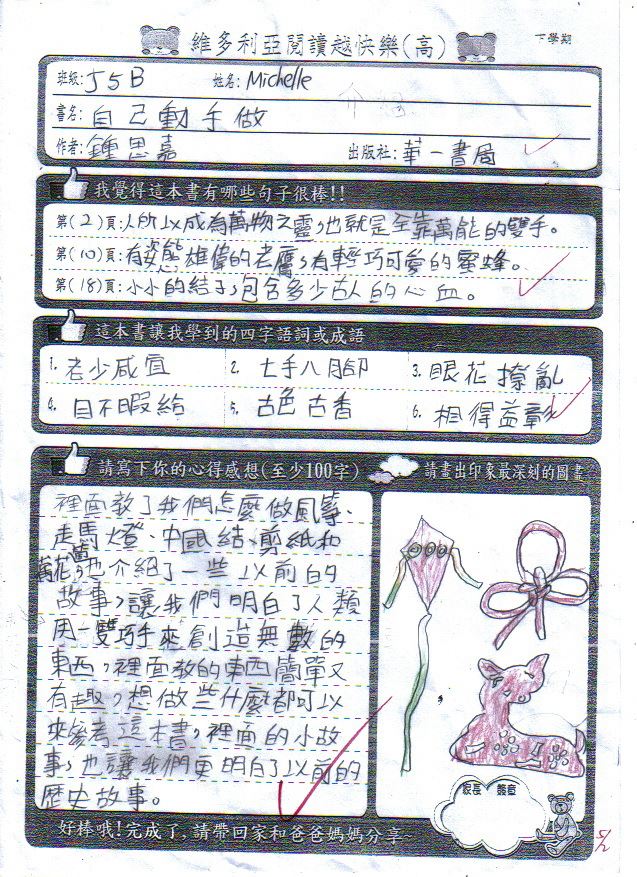 維多利亞閱讀越快樂(高)
下學期
班級: J5B 姓名: Michelle
書名: 自己動手做
作者: 鍾思嘉 出版社: 華一書局
我覺得這本書有哪些句子很棒!!
第(2)頁:人所以成為萬物之靈,也就是全靠萬能的雙手。
第(10)頁:有姿態雄偉的老鷹,有輕巧可愛的蜜蜂。
第(18)頁:小小的結子,包含多少古人的心血。
這本書讓我學到的四字語詞或成語
1. 老少咸宜 2. 七手八腳 3. 眼花撩亂
4. 目不暇給 5. 古色古香 6. 相得益彰
請寫下你的心得感想(至少100字)
請畫出印象最深刻的圖畫
裡面教了我們怎麼做風箏、
走馬燈、中國結、剪紙和
萬花筒,也介紹了一些以前的
故事,讓我們明白了人類
用一雙巧手來創造無數的
東西,裡面教的東西簡單又
有趣,想做些什麼都可以
來參考這本書,裡面的小故
事,也讓我們更明白了以前的
歷史故事。
家長 簽章
好棒哦!完成了,請帶回家和爸爸媽媽分享~